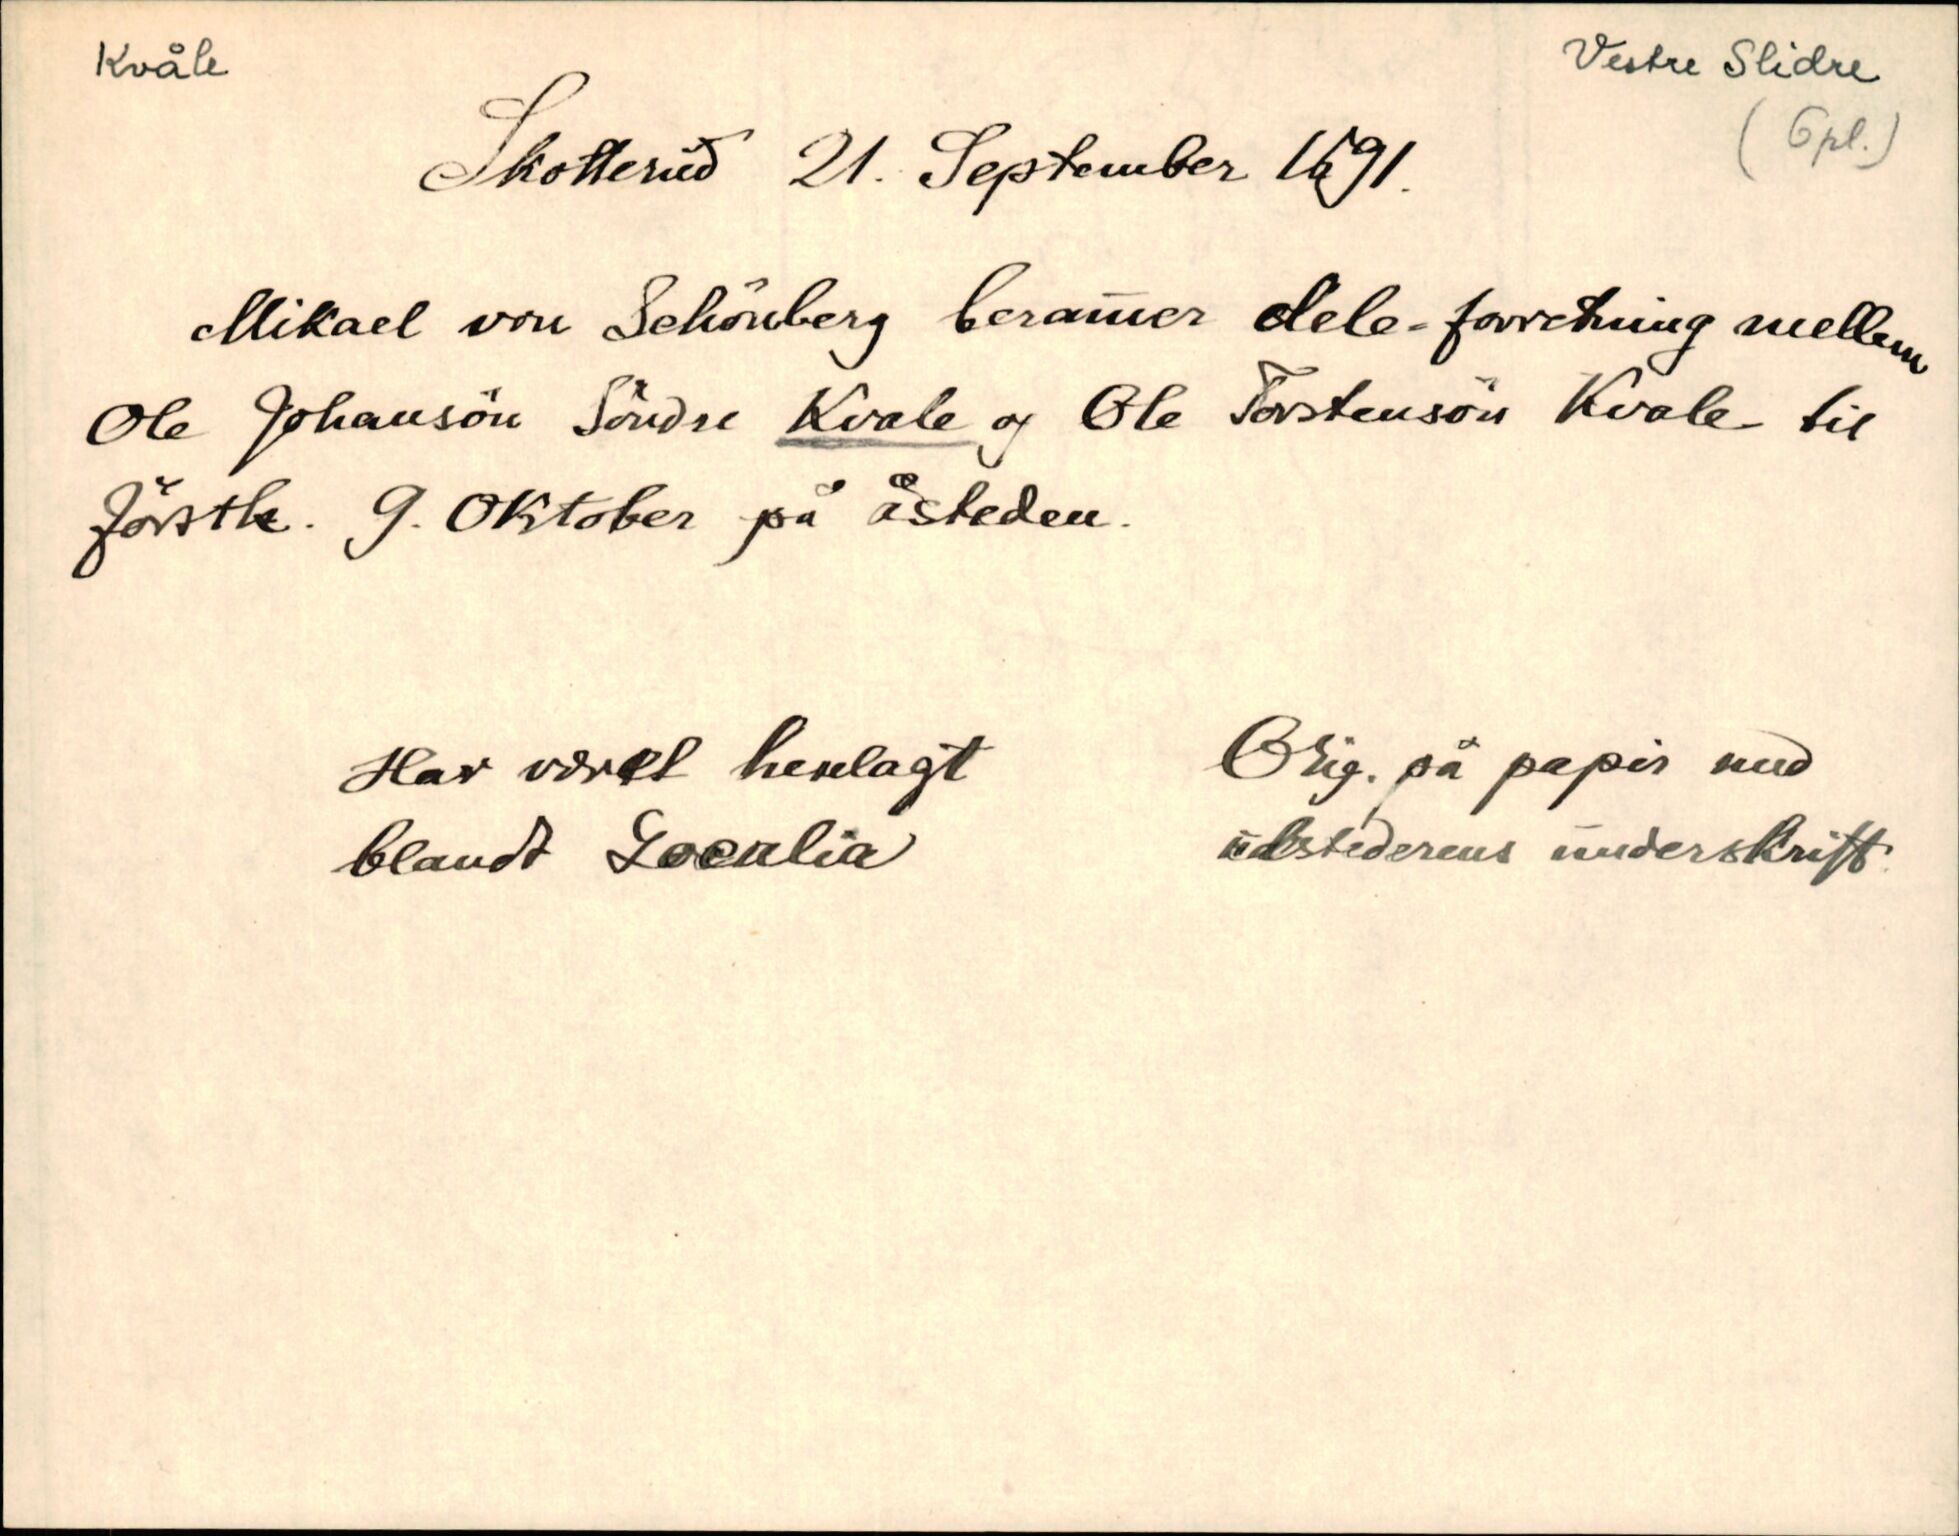 Kvåle
Vestre Slidre
(Gpl.)
Skotterud 21. September 1691.
Mikael von Schönberg beram̄er dele-forretning mellem
Ole Johansön Söndre Kvale og Ole Torstensön Kvale til
förstk. 9. Oktober på åsteden.
Har været henlagt
blandt Localia
Orig. på papir med
udstederens underskrift.